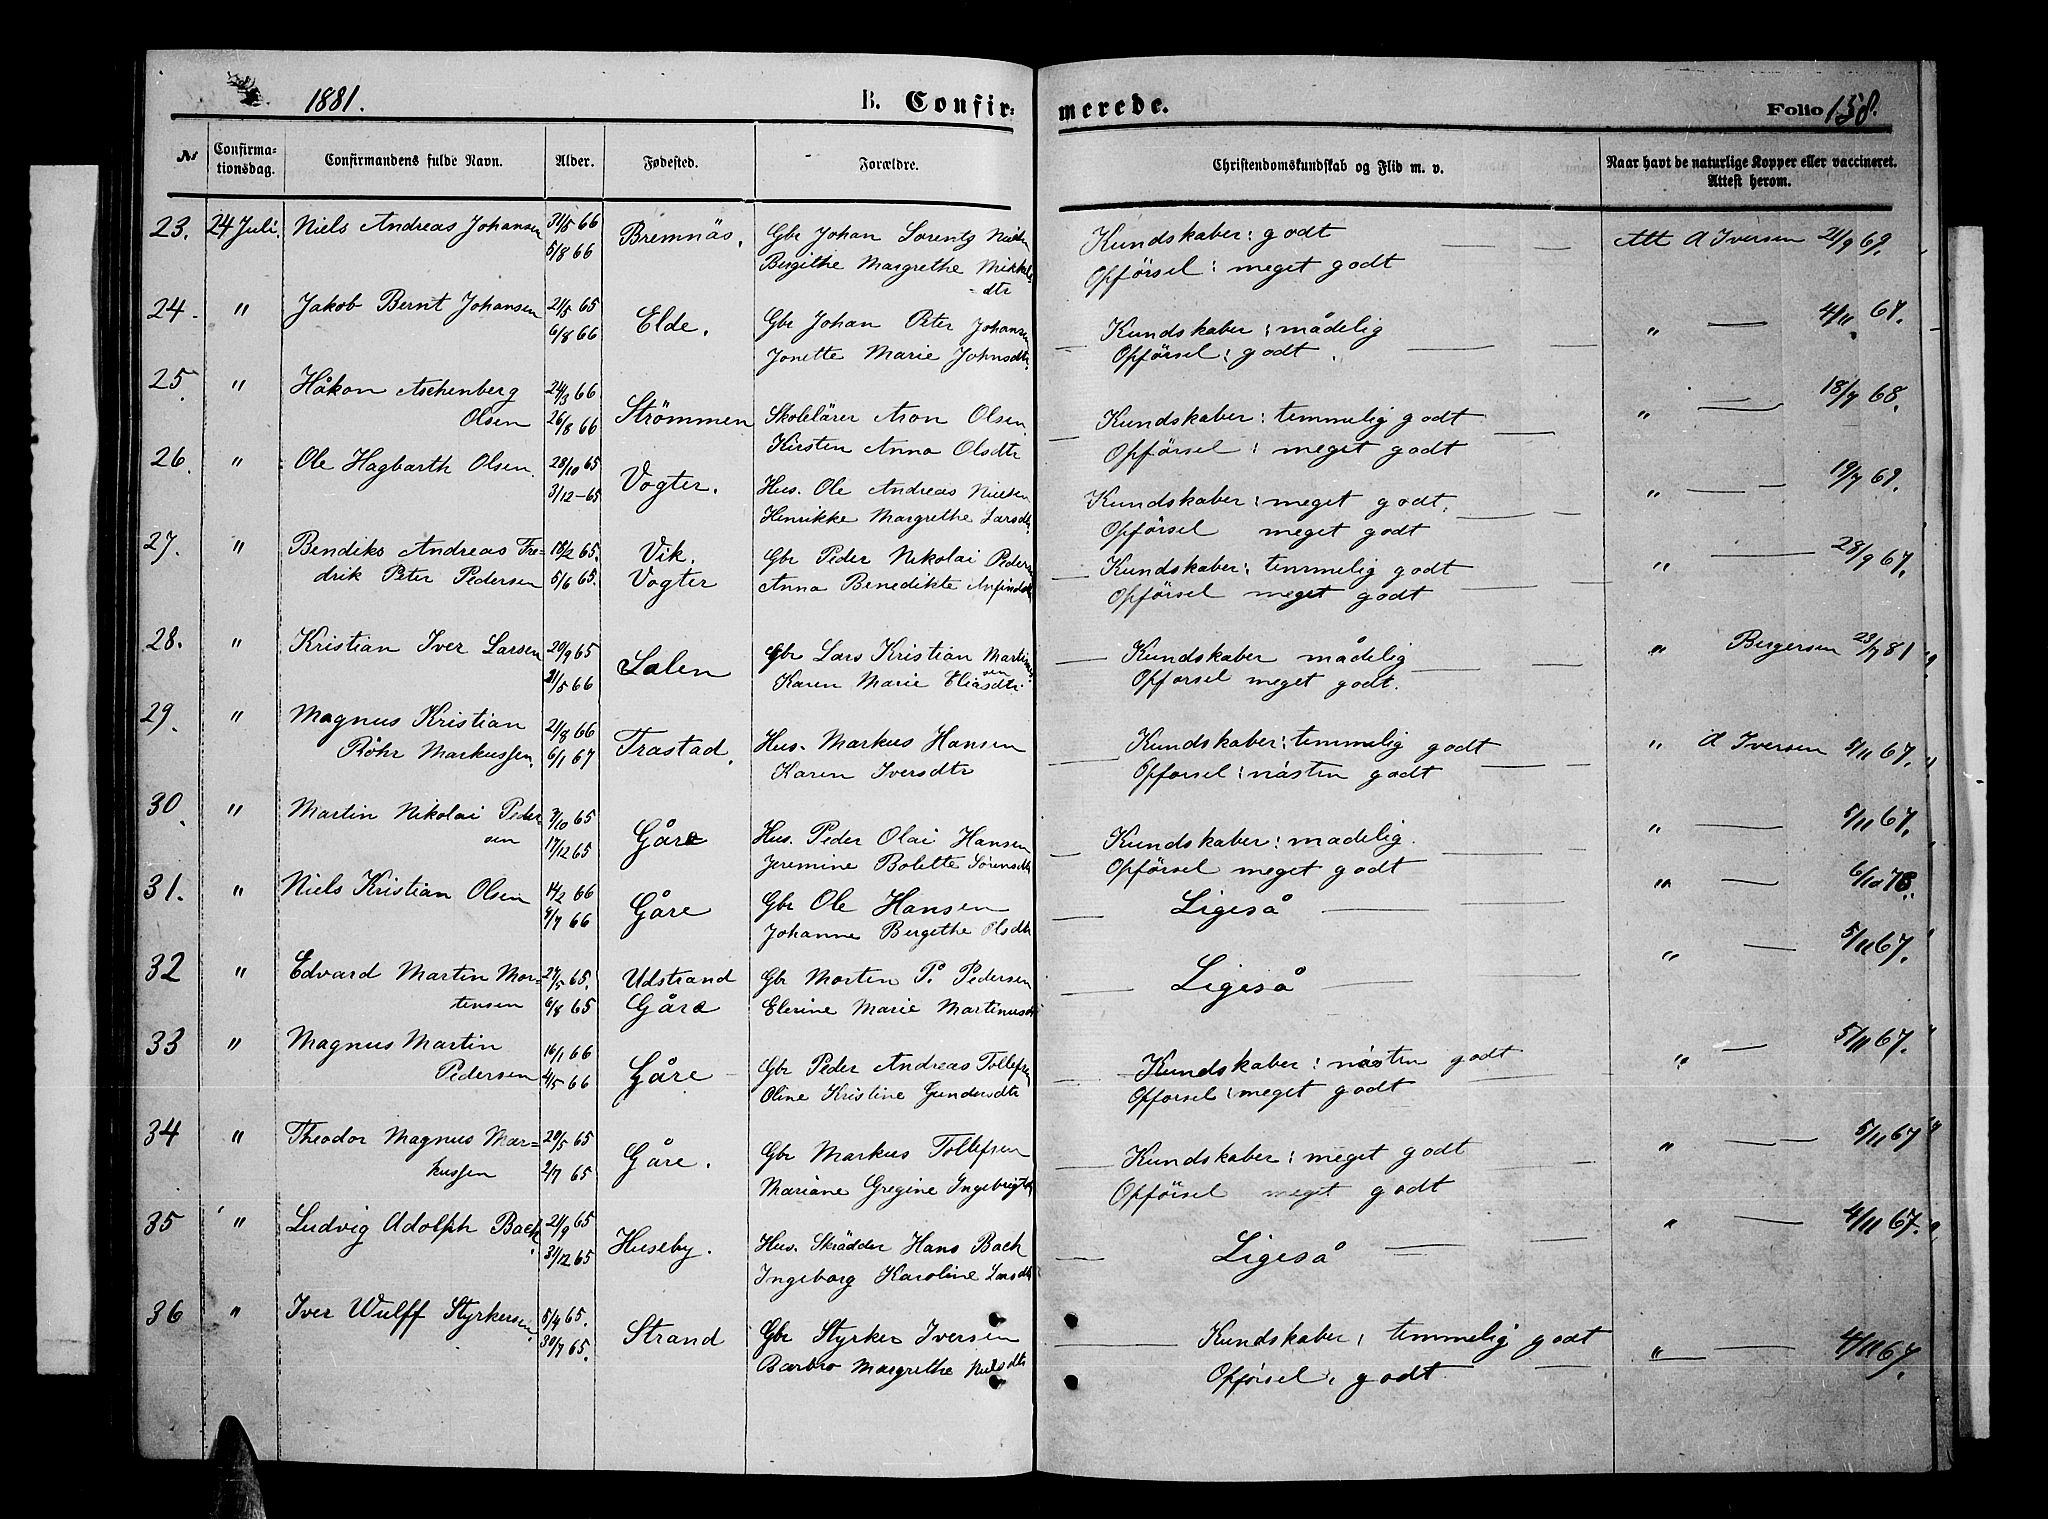 1881.
B. Confir-
merede.
Folio 158.
No
Confirma-
tionsdag.
Confirmandens fulde Navn.
Alder.
Fødested.
Forældre.
Christendomskundskab og Flid m. v.
Naar havt de naturlige Kopper eller vaccineret.
Attest herom.
23. 24 Juli. Niels Andreas Johansen 31/5 66 Bremnäs. Gbr Johan Lorentz Nielsen Kundskaber: godt Att A Iversen 21/9 69.
5/8 66 Bergithe Margrethe Mikkels Opförsel: meget godt
-dtr
24. " Jakob Bernt Johansen 21/5 65 Elde. Gbr Johan Peter Johansen Kundskaber: mådelig " 4/11 67.
6/8 66 Jonette Marie Johnsdtr Opförsel: godt.
25. " Håkon Aschenberg 24/3 66 Strömmen Skolelärer Aron Olsen Kundskaber: temmelig godt " 18/7 68.
Olsen 26/8 66 Kirsten Anna Olsdtr Opförsel: meget godt
26. " Ole Hagbarth Olsen 28/10 65 Vogter. Hus. Ole Andreas Nielsen Kundskaber: meget godt. " 19/7 69.
3/12-65 Henrikke Margrethe Larsdtr Opförsel meget godt
27. " Bendiks Andreas Fre- 18/2 65. Vik. Gbr Peder Nikolai Pedersen Kundskaber: temmelig godt " 28/9 67.
drik Peter Pedersen 5/6 65. Vogter Anna Benedikte Opförsel meget godt
28. " Kristian Iver Larsen 20/9 65 Salen Gbr Lars Kristian Martinus Kundskaber mådelig " Bergersen 23/7 81
21/5 66 sen
Karen Marie Eliasdtr. Opforsel meget godt.
29. " Magnus Kristian 21/8 66 Trastad. Hus. Markus Hansen Kundskaber: temmelig godt " A Iversen 5/11 67.
Röhr Markussen. 6/1 67 Karen Iversdtr Opforsel: nästen godt
30. " Martin Nikolai Peder- /10 65 Gåre Hus. Peder Olai Hansen Kundskaber: madelig. " 5/11 67.
sen 17/12 65 Jeremine Bolette Sörensdtr Opförsel meget godt
31. " Niels Kristian Olsen 14/2 66 Gåre Gbr Ole Hansen Ligeså "
/7 66 Johanne Bergethe Olsdtr
32 " Edvard Martin Mor- 27/5 65. Udstrand Gbr Morten P. Pedersen Ligeså " 5/11 67.
tensen 6/8 65 Gåre Elerine Marie Martinusdtr
33 " Magnus Martin 16/1 66 Gåre Gbr Peder Andreas Tollefsen Kundskaber: nästen godt " 5/11 67.
Pedersen 4/5 66 Oline Kristine Gundersdtr Opforsel: meget godt
34 " Theodor Magnus Mar- 20/5 65 Gåre. Gbr Markus Tollefsen Kundskaber: meget godt " 5/11 67
kussen 2/7 65 Mariane Gregine Ingebrigtdtr Opförsel meget godt
35 " Ludvig Adolph Bach 21/9 65 Huseby. Hus. Skrädder Hans Bach Ligeså " 4/11 67.
31/12 65 Ingeborg Karoline Larsdtr
36 " Iver Wulff Styrkersen 5/4 65. Strand Gbr Styrker Iversen Kundskaber: temmelig godt " 4/11 67.
30/7 65. Barbro Margrethe Nielsdtr Opförsel: godt